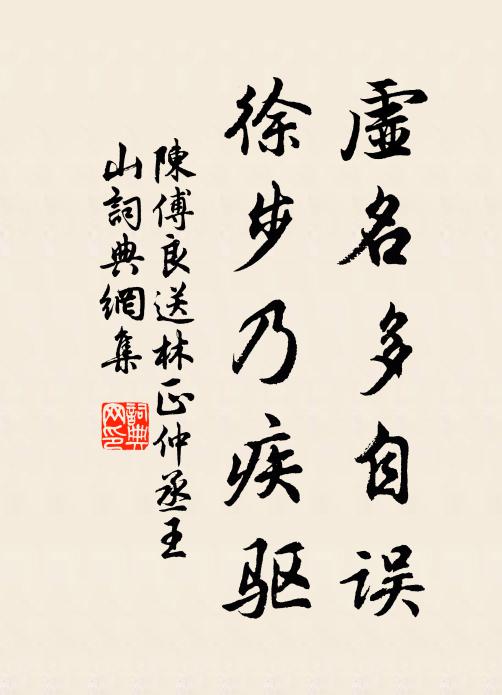 虚名多自误
徐步乃疾驱
陳傅良送林正仲丞王
山詞典網集
詞典網印